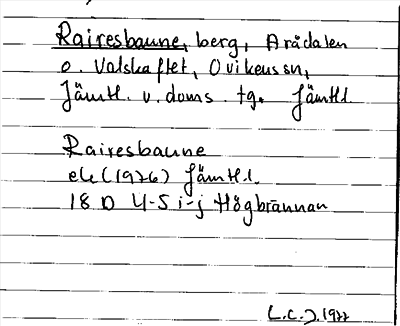 Rairesbaune, berg, Arådalen
o. Valskaftet, Ovikens sn,
Jämtl. v. doms. tg. Jämtl.
Rairesbaune
ek (1976) Jämtl.
18 D 4-5 i-j Högbrännan
L.C.J. 1977